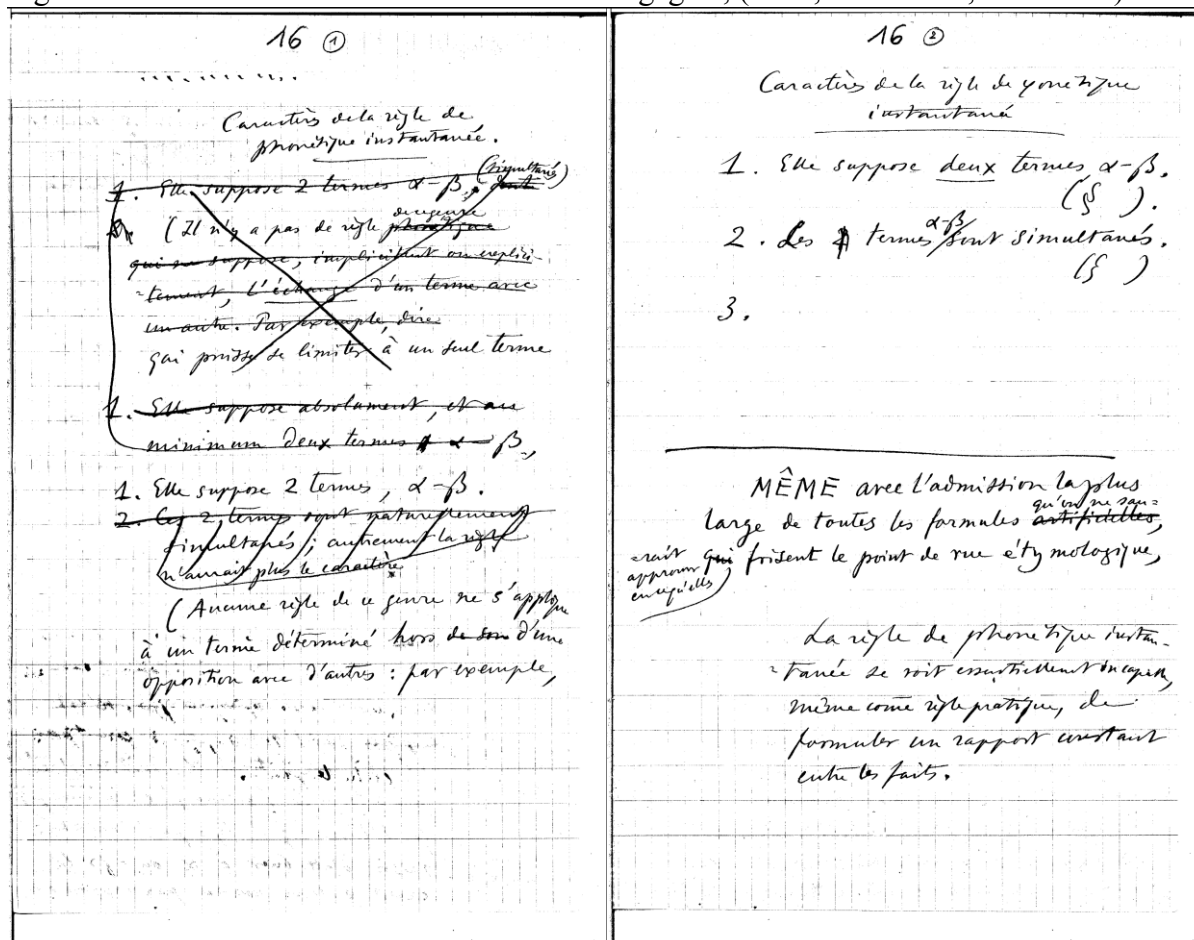 16 ①
Caractères de la règle de
phonétique instantanée.
1. Elle suppose 2 termes α-β, (simultanés)
de ce genre
(Il n'y a pas de règle phonétique
qui ne suppose, implicitement ou explici-
-tement, l'échange d'un terme avec
un autre. Par exemple, dire
qui puisse se limiter à un seul terme
1. Elle suppose absolument, et au
minimum deux termes α - β,
1. Elle suppose 2 termes, α-β.
2. Ces 2 termes sont naturellement
simultanés ; autrement la règle
n'aurait plus le caractère
(Aucune règle de ce genre ne s'applique
à un terme déterminé hors de son d'une
opposition avec d'autres : par exemple,
16 ②
Caractères de la règle de phonétique
instantané
1. Elle suppose deux termes, α-β.
(§ ).
2. Les termes α-β sont simultanés.
(§ )
3.
MÊME avec l'admission la plus
large de toutes les formules artificielles, qu'on ne sau=
=rait approuver en lesquelles qui frisent le point de vue étymologique,
La règle de phonétique instan-
=tanée se voit essentiellement incapable,
même come règle pratique, de
formuler un rapport constant
entre les faits.